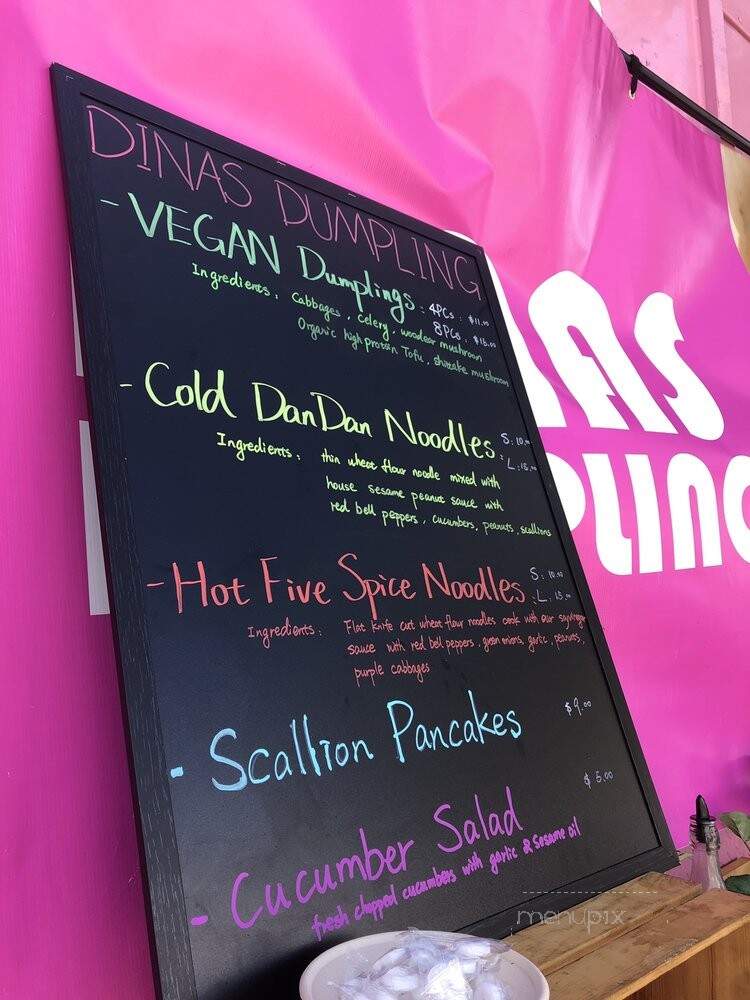 DINAS DUMPLING
- VEGAN Dumplings : 4PCs : $11.00
8PCs : $15.00
Ingredients : Cabbages, celery, woodear mushroom
Organic high protein Tofu, shittake mushroom
- Cold DanDan Noodles S: 10.00
L: 15.00
Ingredients : thin wheat flour noodle mixed with
house sesame peanut sauce with
red bell peppers, cucumbers, peanuts, scallions
- Hot Five Spice Noodles S: 10.00
L: 15.00
Ingredients : Flat knife cut wheat flour noodles cook with our
sauce with red bell peppers, green onions, garlic, peanuts,
purple cabbages
- Scallion Pancakes $9.00
- Cucumber Salad $5.00
fresh chopped cucumbers with garlic & sesame oil
NAS
PLING
menupix